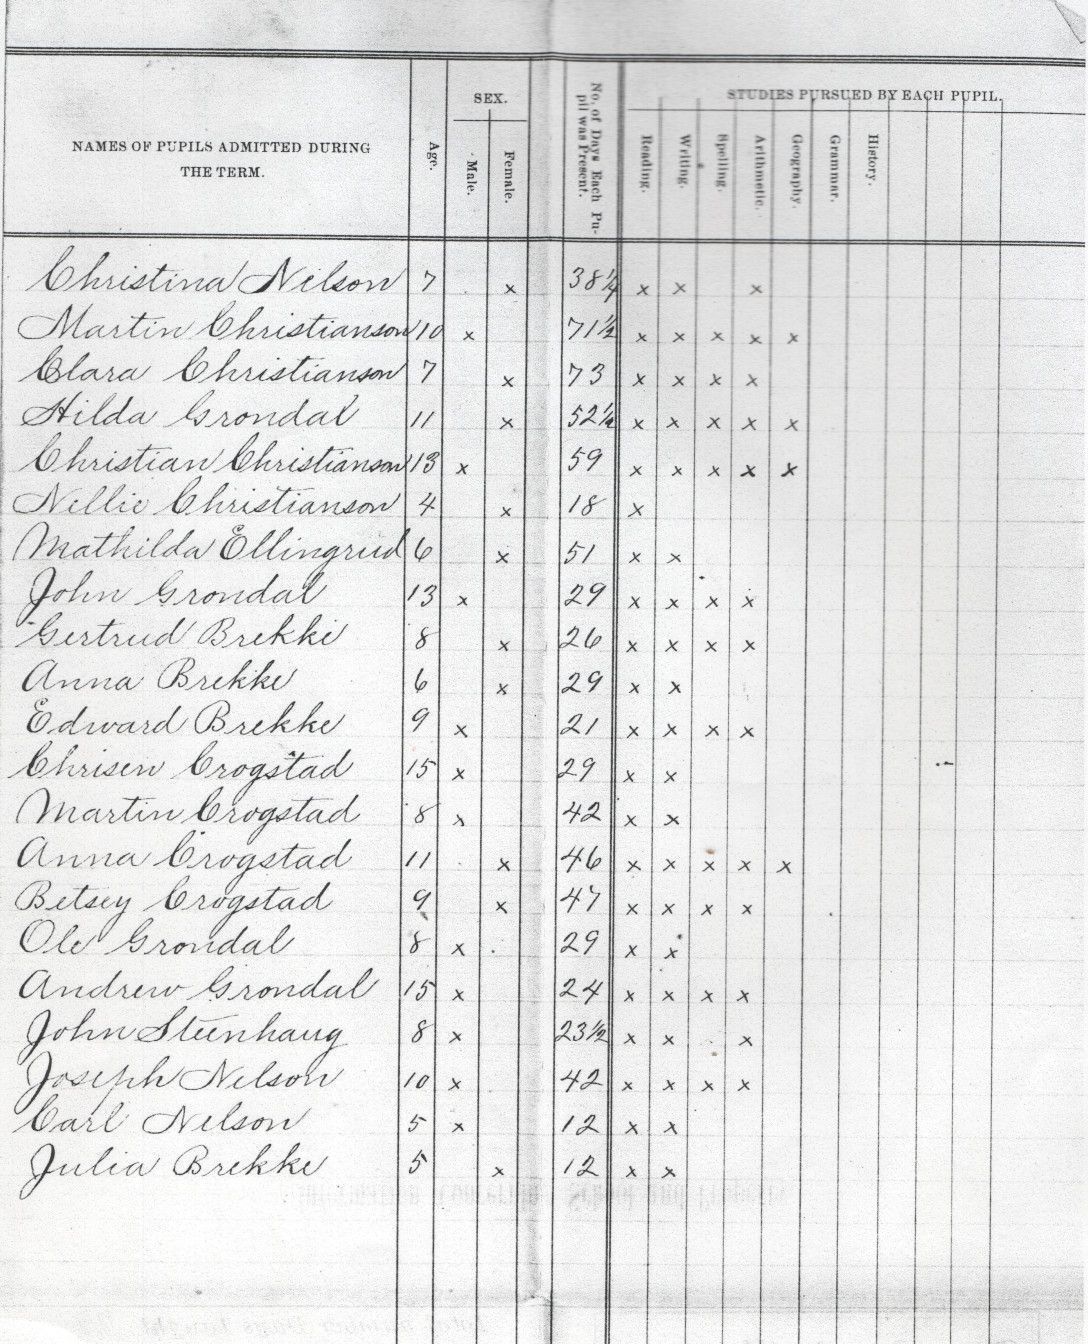 SEX.
STUDIES PURSUED BY EACH PUPIL.
NAMES OF PUPILS ADMITTED DURING
THE TERM.
Age.
Male.
Female.
No. of Days Each Pu-
pil was Present.
Reading.
Writing.
Spelling.
Arithmetic.
Geography.
Grammar.
History.
Christina Nelson 7 x 38 1/4 x x x
Martin Christianson 10 x 71 1/2 x x x x x
Clara Christianson 7 x 73 x x x x
Hilda Grondal 11 x 52 1/2 x x x x x
Christian Christianson 13 x 59 x x x x x
Nellie Christianson 4 x 18 x
Mathilda Ellingrud 6 x 51 x x
John Grondal 13 x 29 x x x x
Gertrud Brekke 8 x 26 x x x x
Anna Brekke 6 x 29 x x
Edward Brekke 9 x 21 x x x x
Chrisen Crogstad 15 x 29 x x
Martin Crogstad 8 x 42 x x
Anna Crogstad 11 x 46 x x x x x
Betsey Crogstad 9 x 47 x x x x
Ole Grondal 8 x 29 x x
Andrew Grondal 15 x 24 x x x x
John Steenhaug 8 x 23 1/2 x x x
Joseph Nelson 10 x 42 x x x x
Carl Nelson 5 x 12 x x
Julia Brekke 5 x 12 x x